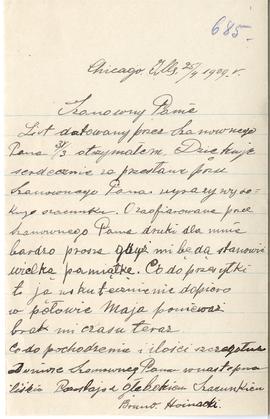 685.
Chicago, Ills, 25/4 1929. r.
Szanowny Panie
List datowany przez Szanownego
Pana 31/3 otrzymałem. Dziękuję
serdecznie za przesłane przez
Szanownego Pana wyrazy wyso-
kiego szacunku. O zaofiarowane przez
szanownego Pana druki dla mnie
bardzo proszę gdyż mi będą stanowić
wielką pamiątkę. Co do przesyłki
to ja uskutecznienie dopiero
w połowie Maja ponieważ
brak mi czasu teraz
Co do pochodzenia i ilości
Szanownego Pana w następnem
liście Pozostaję z głębokiem Szacunkiem
Bruno